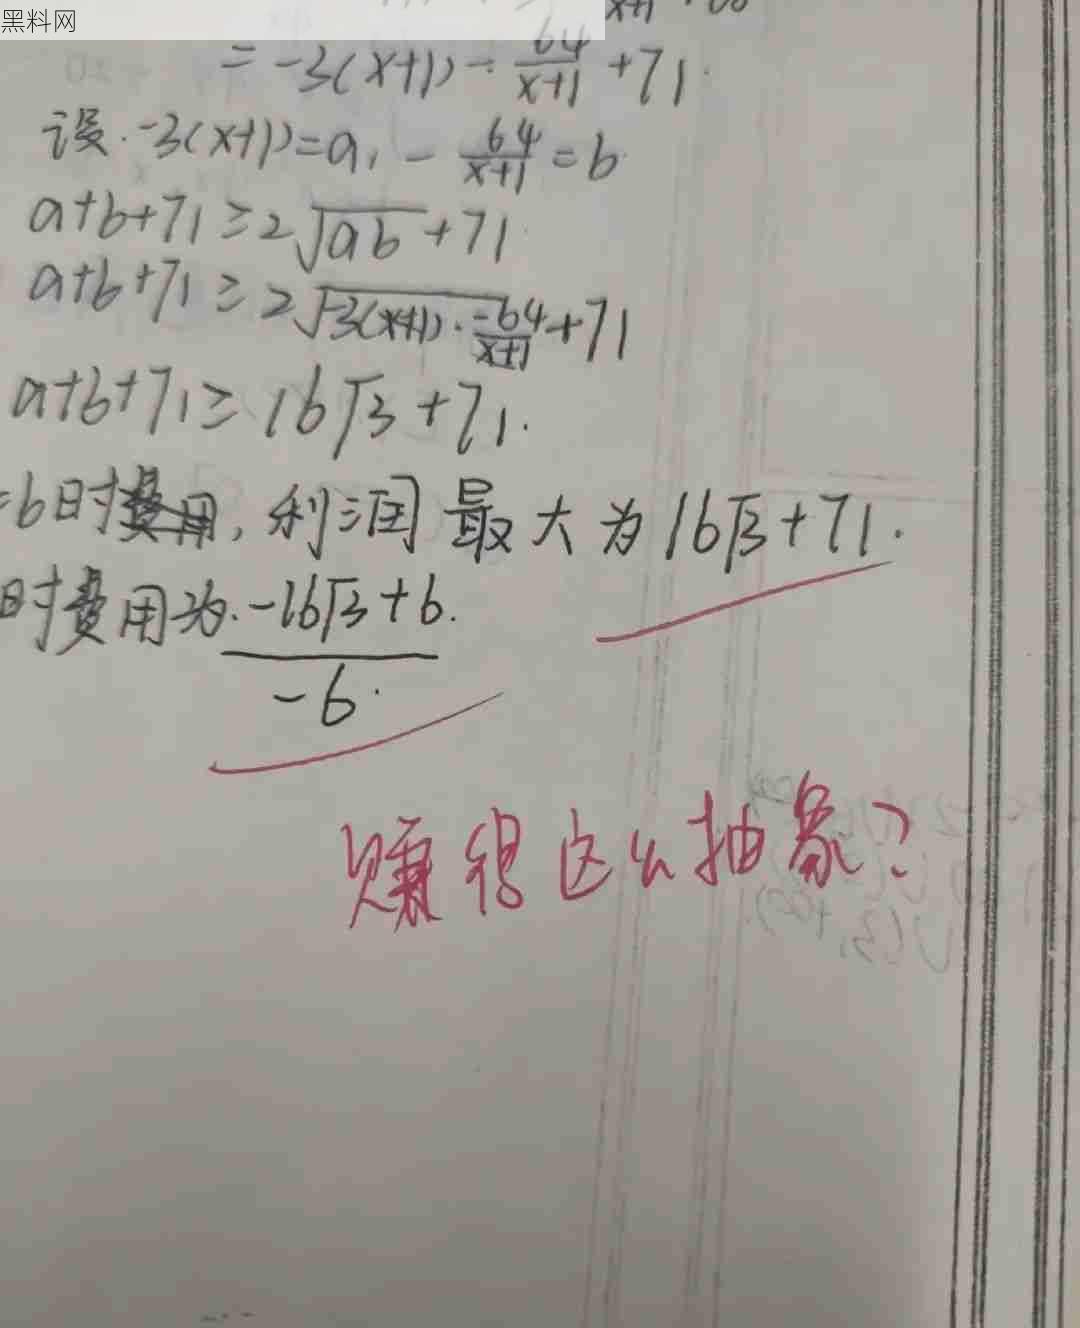 黑料网
= -3(x+1) - 64/(x+1) + 71.
设. -3(x+1)=a, - 64/(x+1) = b
a+b+71 ≥ 2√ab + 71
a+b+71 ≥ 2√(-3(x+1)·(-64)/(x+1)) + 71
a+b+71 ≥ 16√3 + 71.
=b时, 利润最大为16√3+71.
时费用为. (-16√3+6.)/(-6.)
赚得这么抽象?